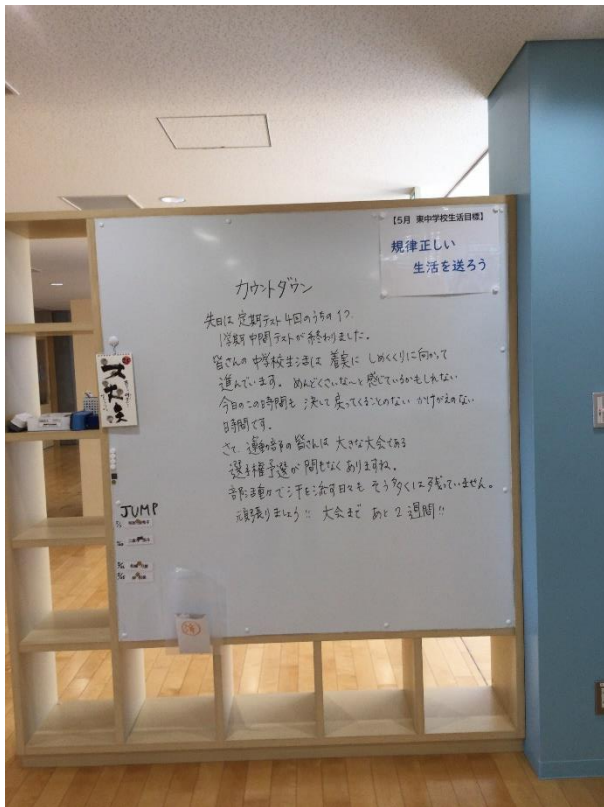 【5月 東中学校生活目標】
規律正しい
生活を送ろう
カウントダウン
先日は定期テスト4回のうちの1つ、
1学期中間テストが終わりました。
皆さんの中学校生活は着実にしめくくりに向かって
進んでいます。めんどくさいな〜と感じているかもしれない
今日のこの時間も決して戻ってくることのないかけがえのない
時間です。
さて、運動部の皆さんは大きな大会である
選手権予選が間もなくありますね。
部活動で汗を流す日々もそう多くは残っていません。
頑張りましょう!! 大会まであと2週間!!
JUMP